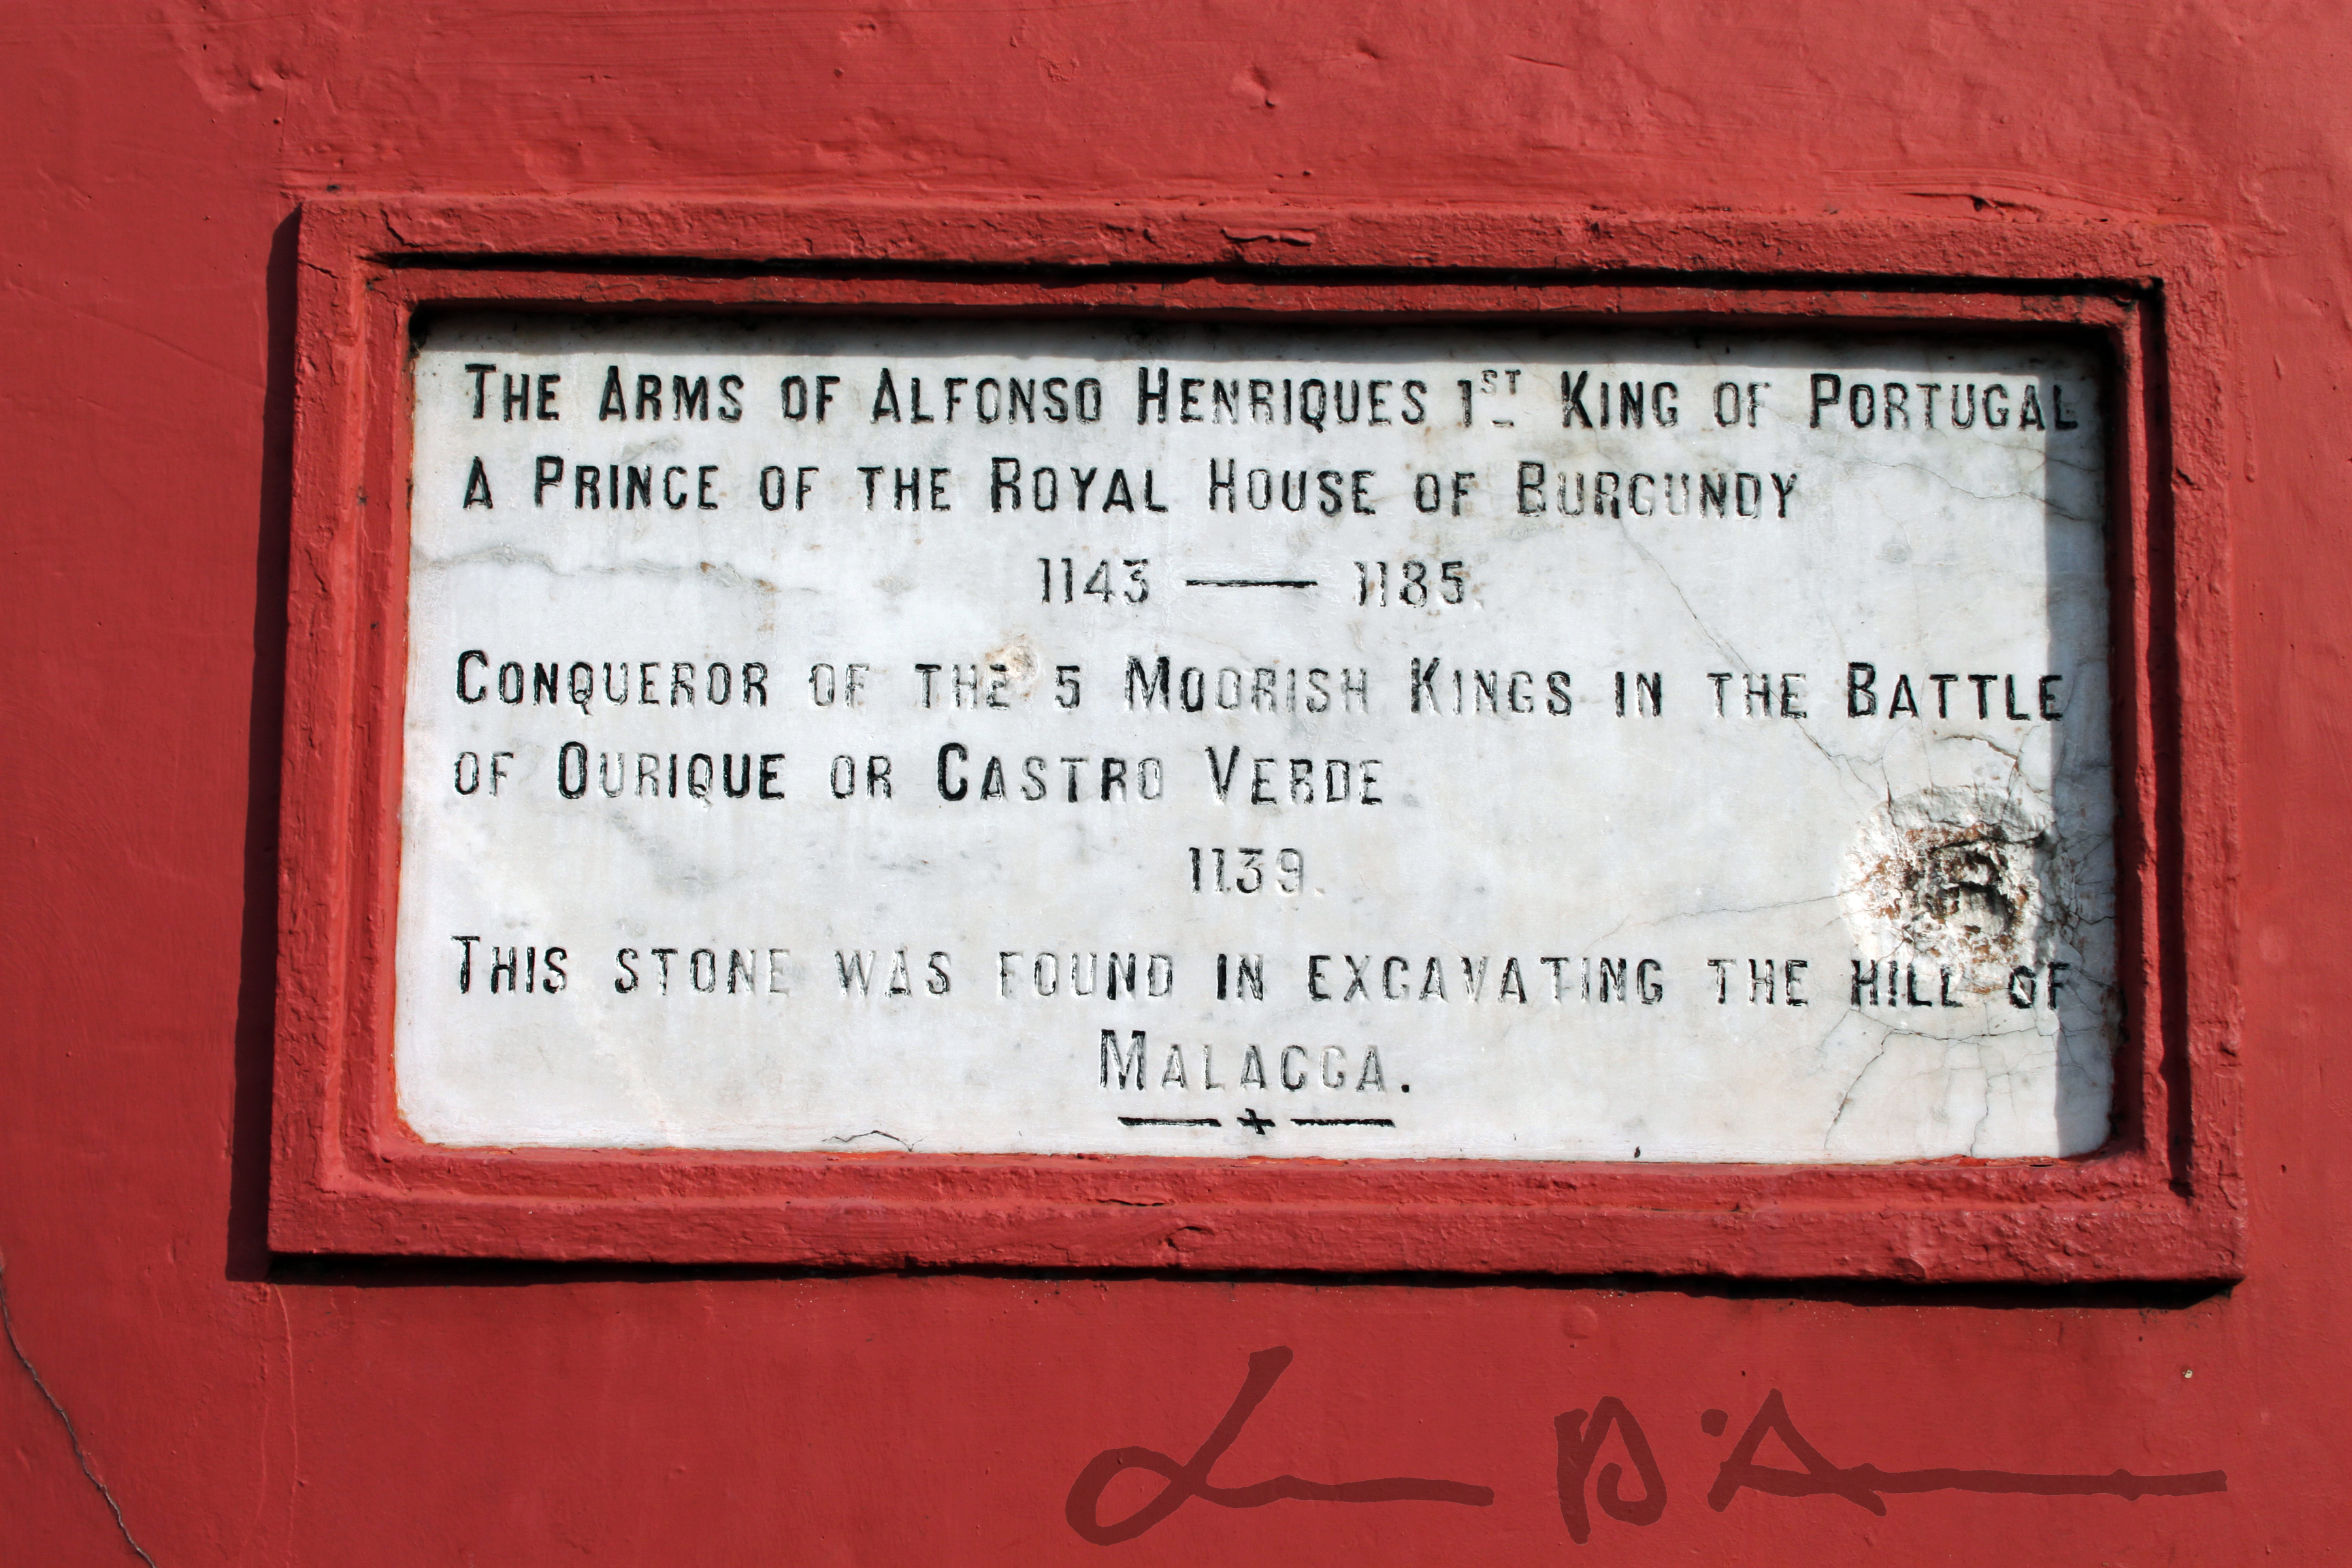 The Arms of Alfonso Henriques 1st King of Portugal
A Prince of the Royal House of Burgundy
1143 — 1185.
Conqueror of the 5 Moorish Kings in the Battle
of Ourique or Castro Verde
1139.
This stone was found in excavating the hill of
Malacca.